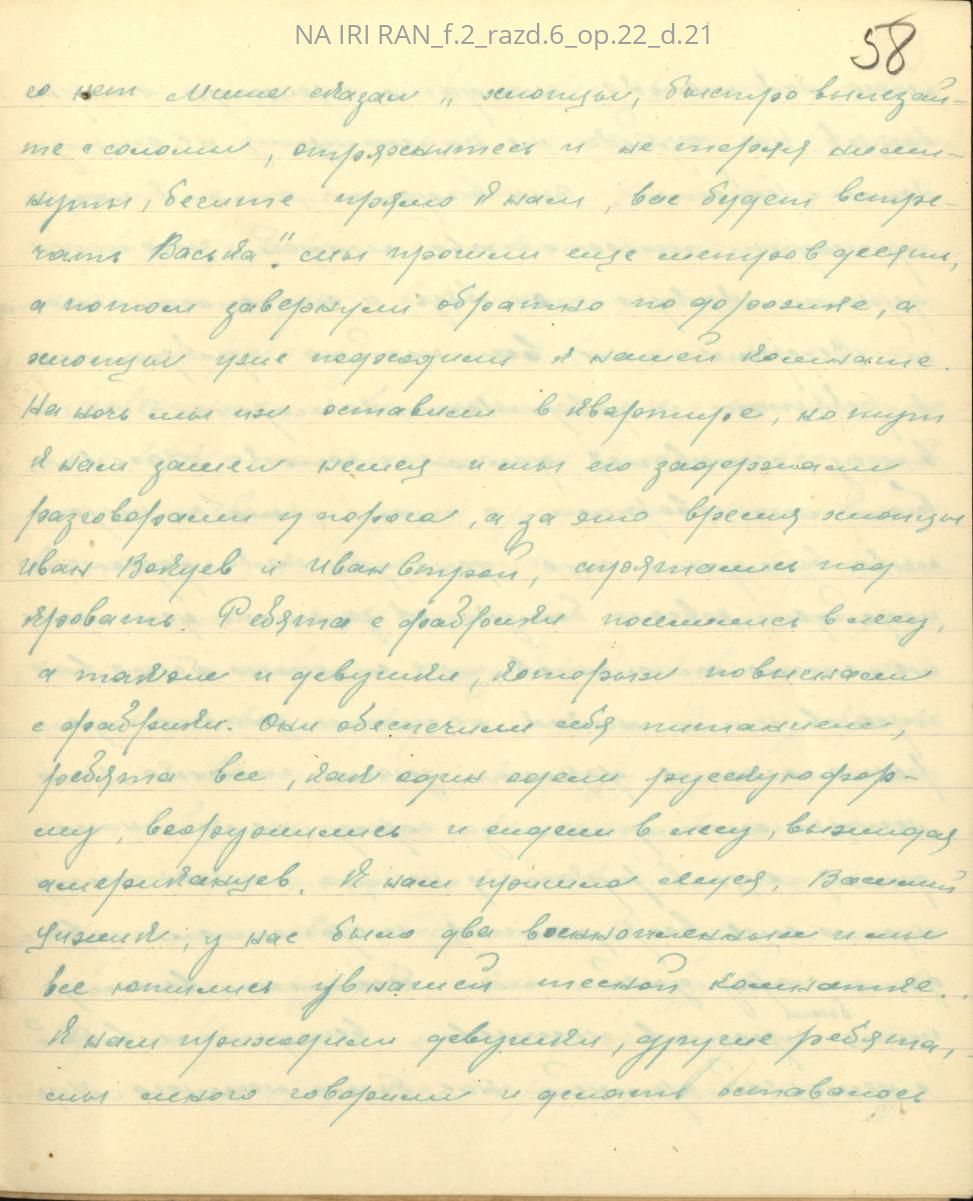 NA IRI RAN_f.2_razd.6_op.22_d.21
58
со мной сказал „ хлопцы, быстро вылезай-
те с соломы, отряхнитесь и не теряя ни ми-
нуты, бегите прямо к нам, вас будет встре-
чать Васька". мы прошли еще метров десять,
а потом завернули обратно по дорожке, а
хлопцы уже подходили к нашей комнате.
На ночь мы их оставили в квартире, но тут
к нам зашел немец и мы его задержали
разговорами у порога, а за это время хлопцы
Иван и Иван второй, спрятались под
кровать. Ребята с фабрики в лесу,
а также и девушки, которых повыгнали
с фабрики. Они обеспечили себя питанием,
ребята все, как один одели русскую фор-
му, вооружились и сидели в лесу, выжидая
американцев. К нам пришла Муся, Василий
у нас было два военнопленных и мы
все ютились у в нашей тесной комнатке.
К нам приходили девушки, другие ребята,
мы много говорили и делать оставалось